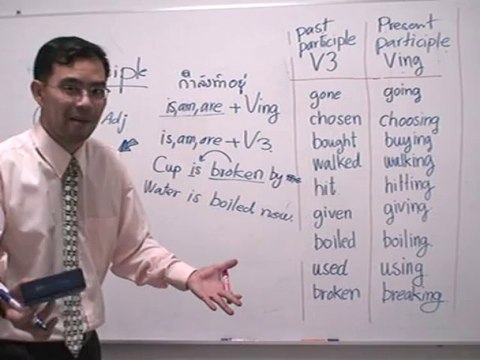 ciple
Adj
กำลังทำอยู่
is, am, are + Ving
is, am, are + V3
Cup is broken by me
Water is boiled now.
past participle V3
Present participle Ving
gone going
chosen choosing
bought buying
walked walking
hit hitting
given giving
boiled boiling
used using
broken breaking